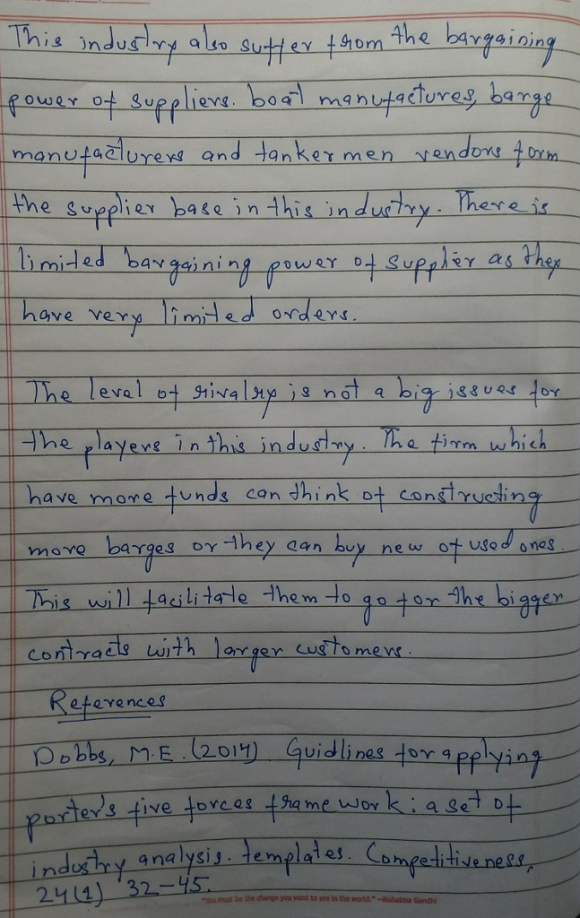 This industry also suffer from the bargaining
power of suppliers. boat manufactures, barge
manufacturers and tankermen vendors form
the supplier base in this industry. There is
limited bargaining power of supplier as they
have very limited orders.
The level of rivalry is not a big issues for
the players in this industry. The firm which
have more funds can think of constructing
more barges or they can buy new of used ones.
This will facilitate them to go for the bigger
contracts with larger customers.
References
Dobbs, M.E. (2014) Guidlines for applying
porter's five forces frame work: a set of
industry analysis. templates. Competitiveness,
24(1) 32-45.
"You must be the change you want to see in the world." -Mahatma Gandhi